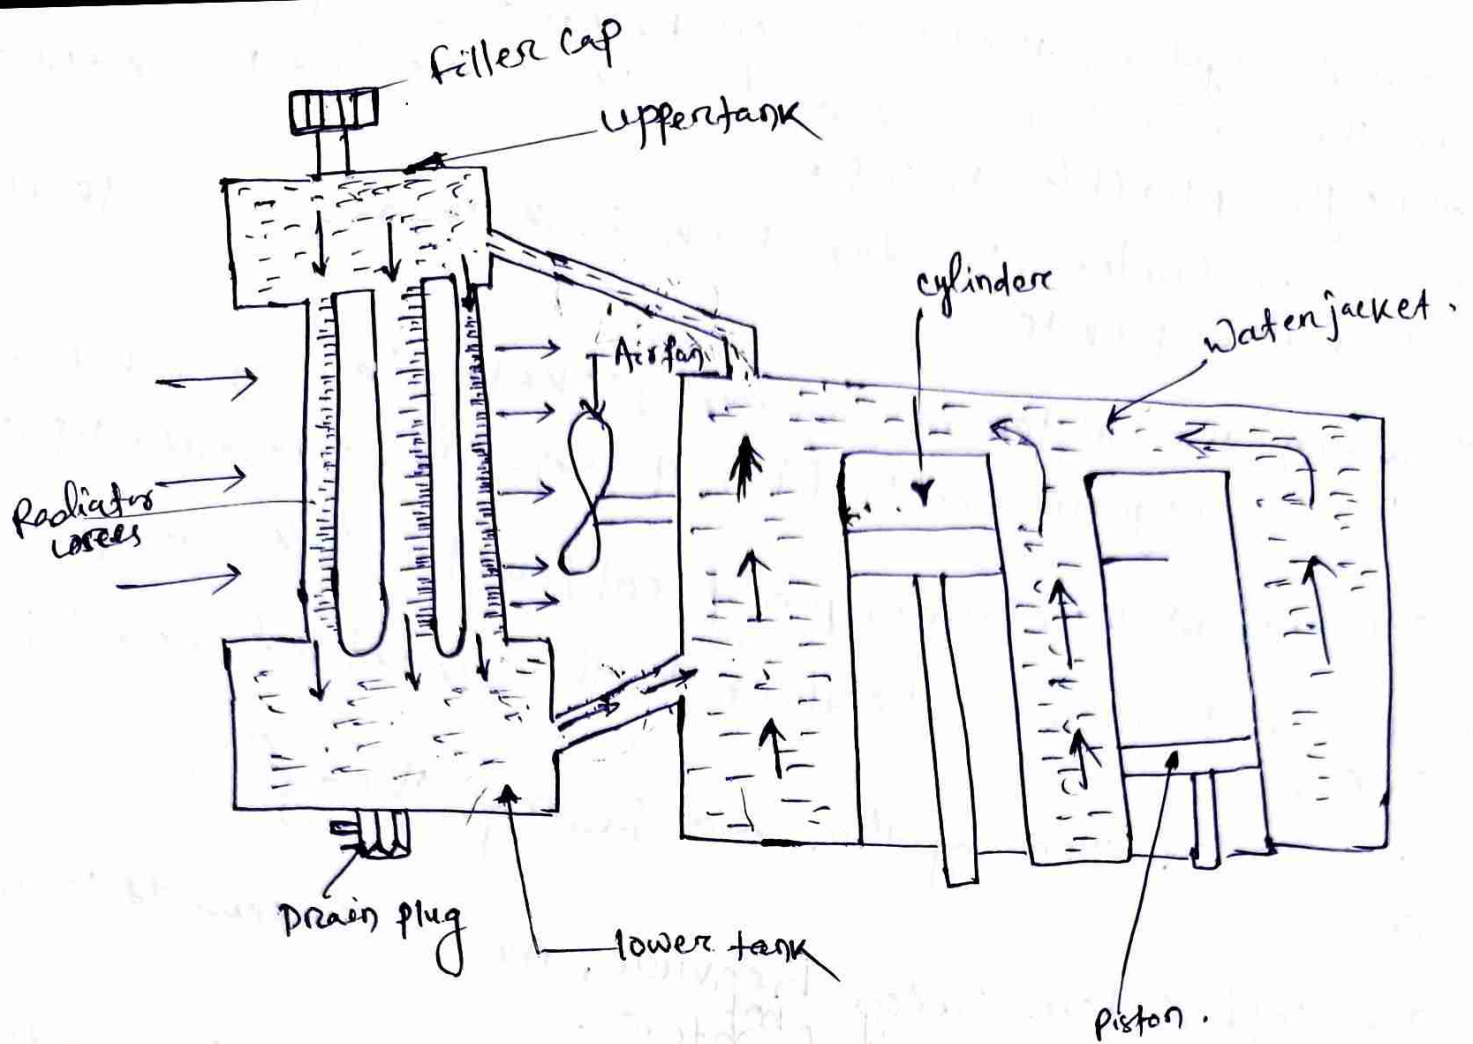 filler cap
Upper tank
cylinder
Water jacket.
Air fan
Radiator
Drain plug
lower tank
piston.